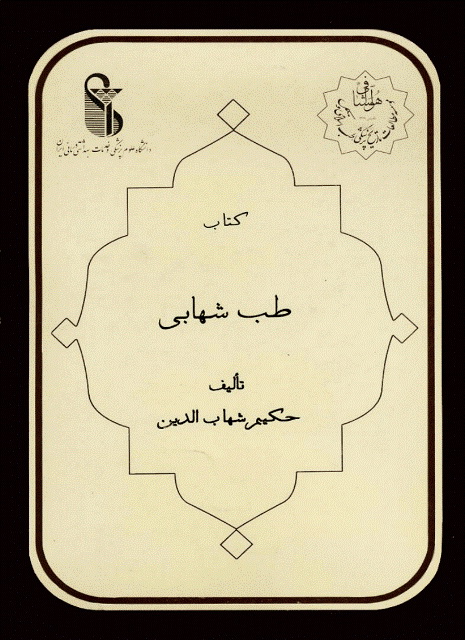 هوالشافی
دانشگاه علوم پزشکی و خدمات بهداشتی درمانی ایران
کتاب
طب شهابی
تألیف
حکیم شهاب الدین